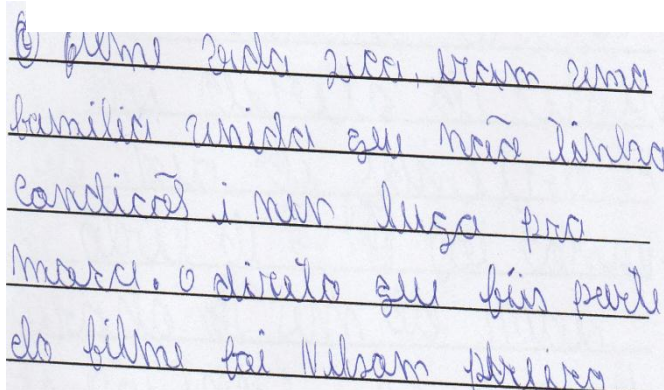 O filme vida seca, eram uma
familia unida que não tinha
condicõs i nen luga pra
mora. o direto que fùs parte
do filme foi Nelsam pereira